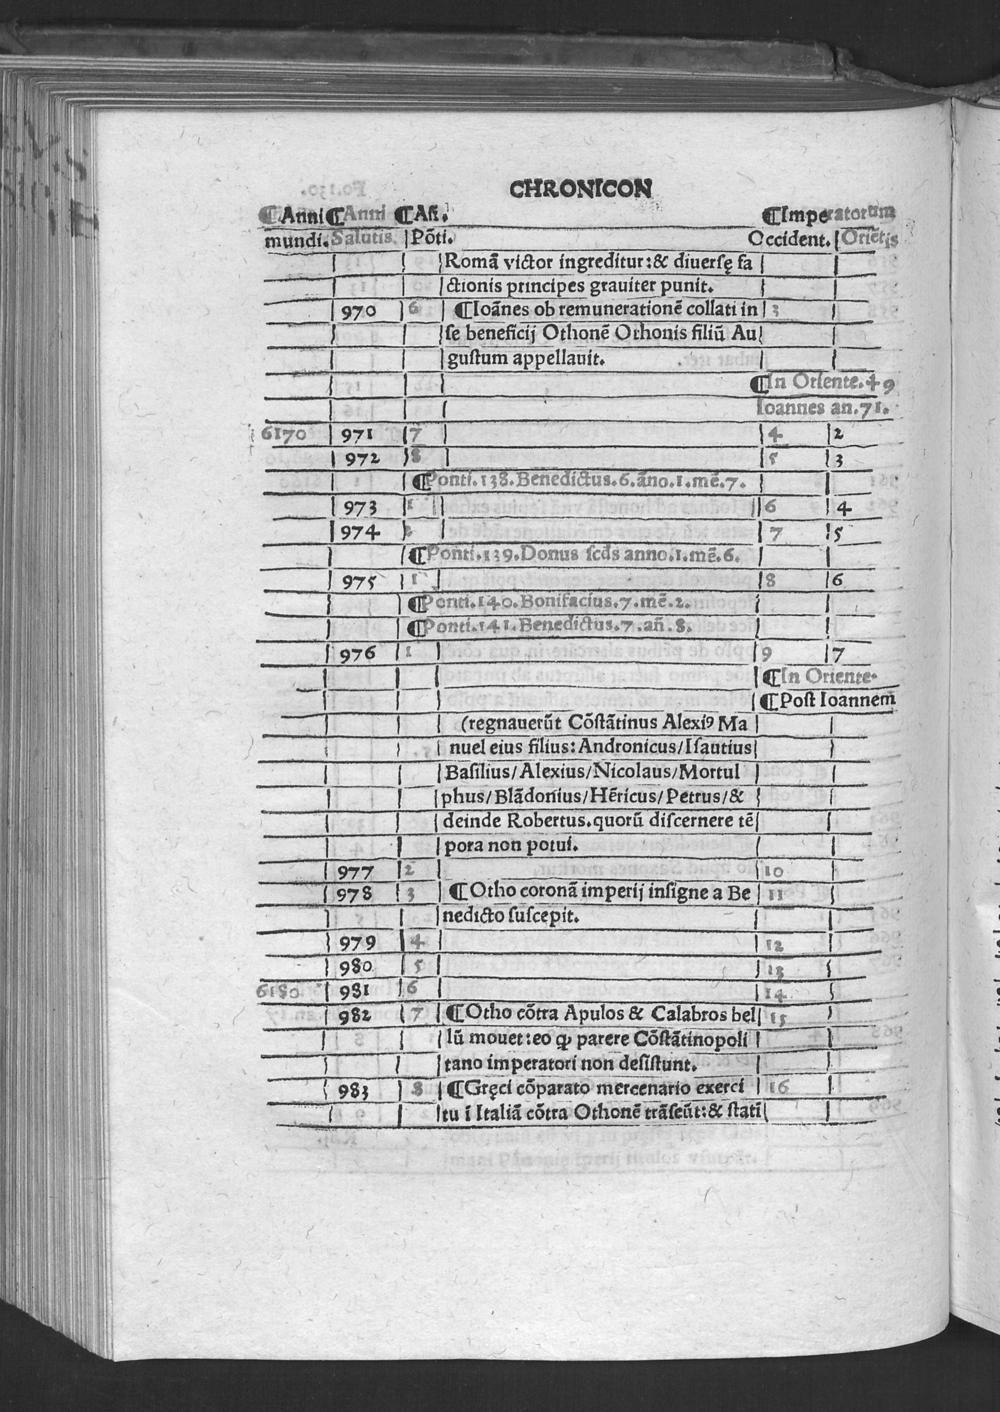 CHRONICON
¶Anni ¶Anni ¶Añ. ¶Imperatorum
mundi. Salutis. Põti. Occident. Oriẽtis
Romã victor ingreditur:& diuersę fa
ctionis principes grauiter punit.
970 6 ¶Ioãnes ob remunerationẽ collati in 3
se beneficij Othonẽ Othonis filiũ Au
gustum appellauit.
¶In Oriente.49
Ioannes an.71.
6170 971 7 4 2
972 8 5 3
¶Ponti.138.Benedictus.6.ãno.1.mẽ.7.
973 1 6 4
974 2 7 5
¶Ponti.139.Donus scds anno.1.mẽ.6.
975 1 8 6
¶Ponti.140.Bonifacius.7.mẽ.2.
¶Ponti.141.Benedictus.7.añ.8.
976 1 9 7
¶In Oriente.
¶Post Ioannem
(regnauerũt Cõstãtinus Alexiꝰ Ma
nuel eius filius: Andronicus/Isautius
Basilius/Alexius/Nicolaus/Mortul
phus/Blãdonius/Hẽricus/Petrus/&
deinde Robertus.quorũ discernere tẽ
pora non potui.
977 2 10
978 3 ¶Otho coronã imperij insigne a Be 11
nedicto suscepit.
979 4 12
980 5 13
6180 981 6 14
982 7 ¶Otho cõtra Apulos & Calabros bel 15
lũ mouet:eo ꝙ parere Cõstãtinopoli
tano imperatori non desistunt.
983 8 ¶Gręci cõparato mercenario exerci 16
tu ĩ Italiã cõtra Othonẽ trãseũt:& statĩ